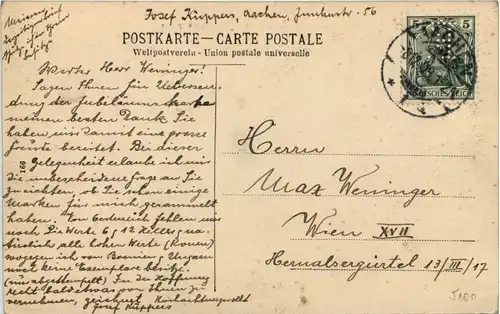 Josef Küppers, Aachen, Junkerstr. 56
POSTKARTE — CARTE POSTALE
Weltpostverein - Union postale universelle
5 5
AACHEN
DEUTSCHES REICH
Werter Herr Weninger!
Sagen Ihnen für Uebersen-
dung der Jubiläumskarte
meinen besten Dank. Sie
haben mir damit eine grosse
Freude bereitet. Bei dieser
Gelegenheit erlaube ich mir
die unbescheidene Frage an Sie
zu richten, ob Sie schon einige
Marken für mich gesammelt
haben. Von fehlen mir
noch die Werte 6, 12 Heller, na-
türlich alle hohen Werte (Kronen)
wogegen ich von Bosnien, Ungarn
noch keine Exemplare besitze.
(nur abgestempelt) In der Hoffnung
recht bald etwas von Ihnen zu
vernehmen, zeichnet Hochachtungsvollst
Josef Küppers
166
Herrn
Max Weninger
Wien XVII
Hernalsergürtel 13/III/17